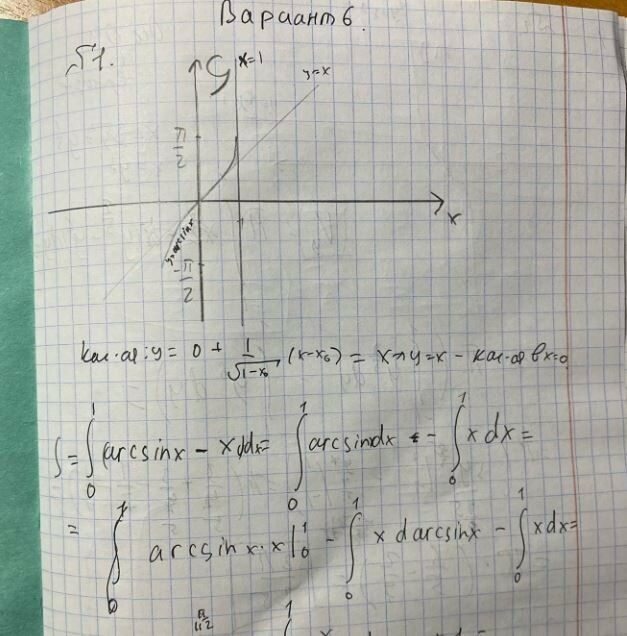 Вариант 6.
№1.
y x=1
y=x
π/2
x
y=arcsinx
-π/2
Кас-ая: y = 0 + 1/√1-x₀ (x-x₀) = x ⇒ y=x - кас-ая в x=0
S = ∫₀¹ (arcsinx - x)dx = ∫₀¹ arcsindx - ∫₀¹ x dx =
= ∫₀¹ arcsinx·x|₀¹ - ∫₀¹ x darcsinx - ∫₀¹ xdx =